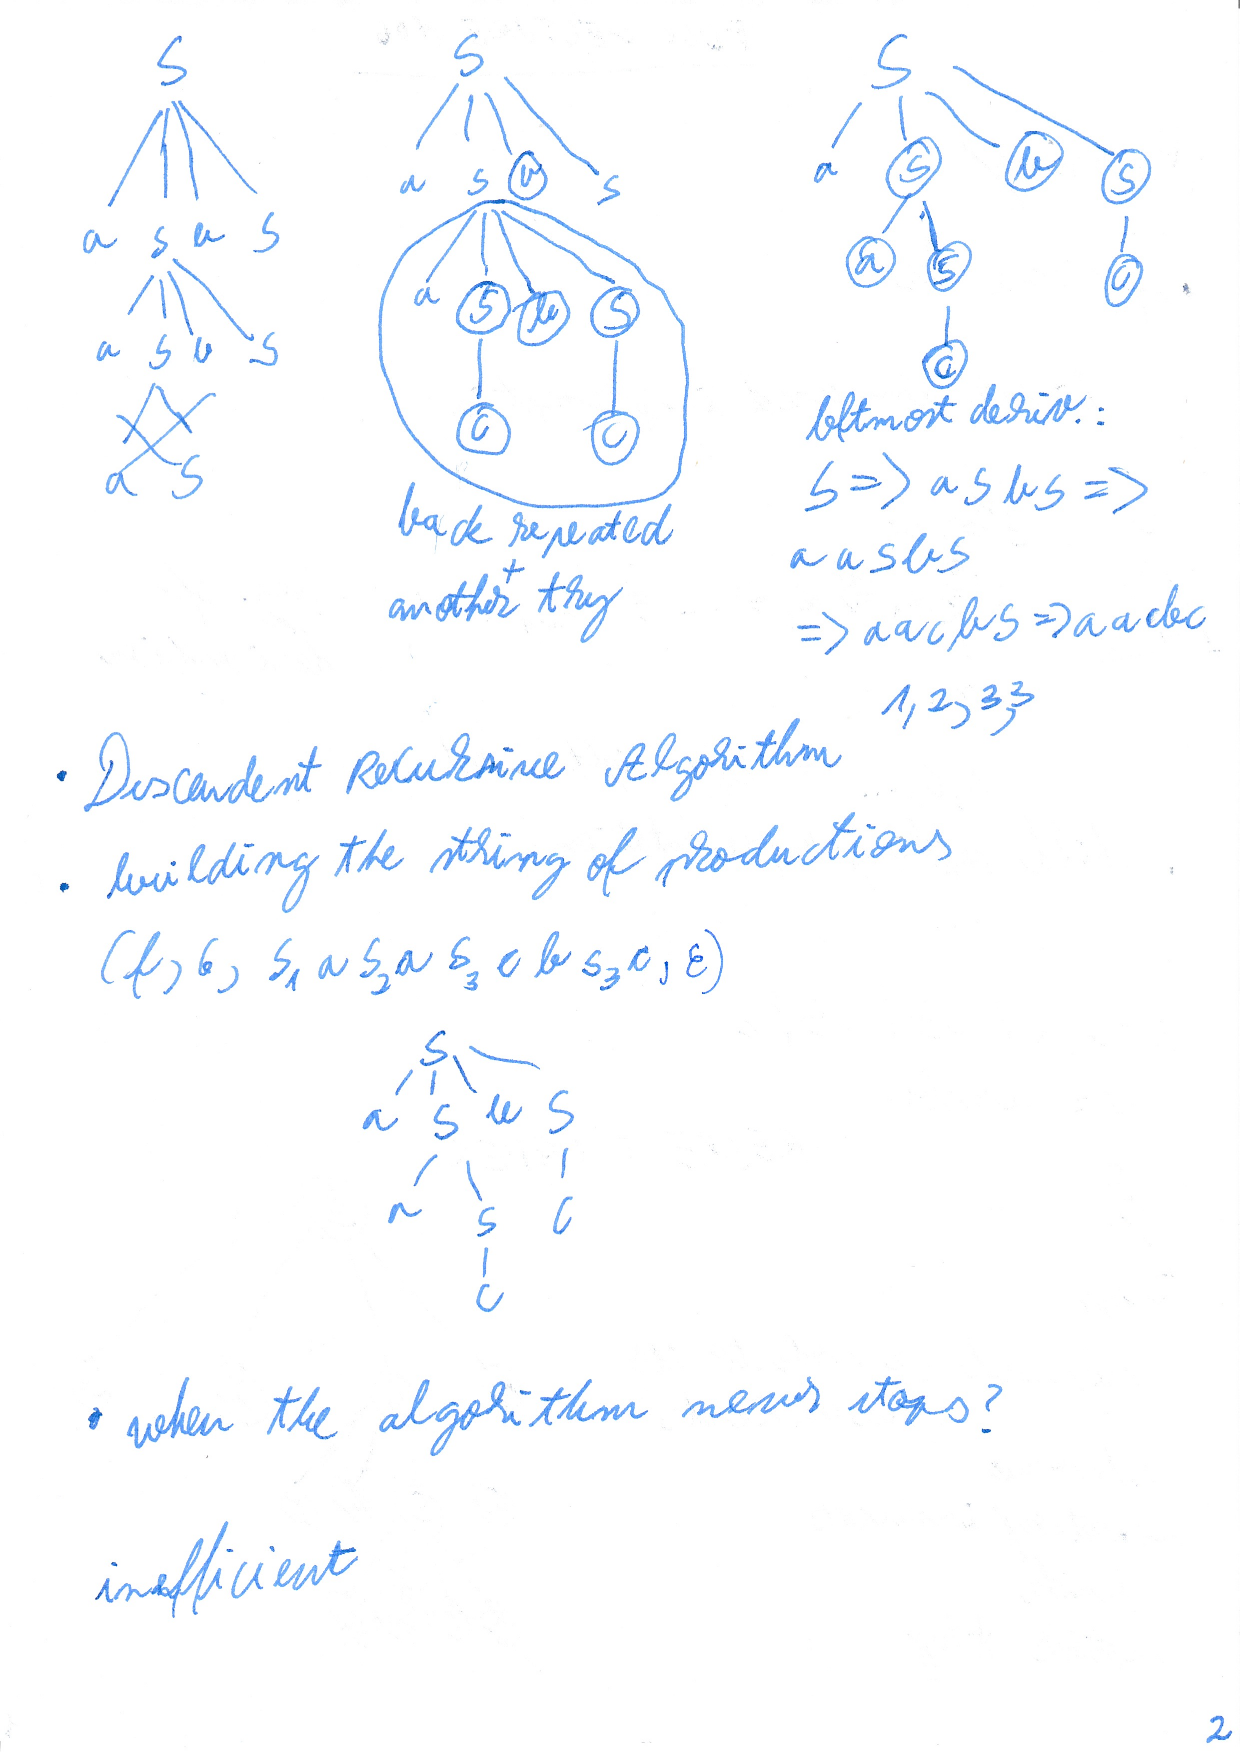 S
a S b S
a S b S
a S
S
a S b S
a S b S
c c
back repeated
+
another try
S
a S b S
a S c
c
leftmost deriv.:
S => a S b S =>
a a S b S
=> a a c b S => a a c b c
1, 2, 3, 3
• Descendent Recursive Algorithm
• building the string of productions
(f, 6, S₁ a S₂ a S₃ c b S₃ c, ε)
S
a S b S
a S c
c
• when the algorithm never stops?
inefficient
2